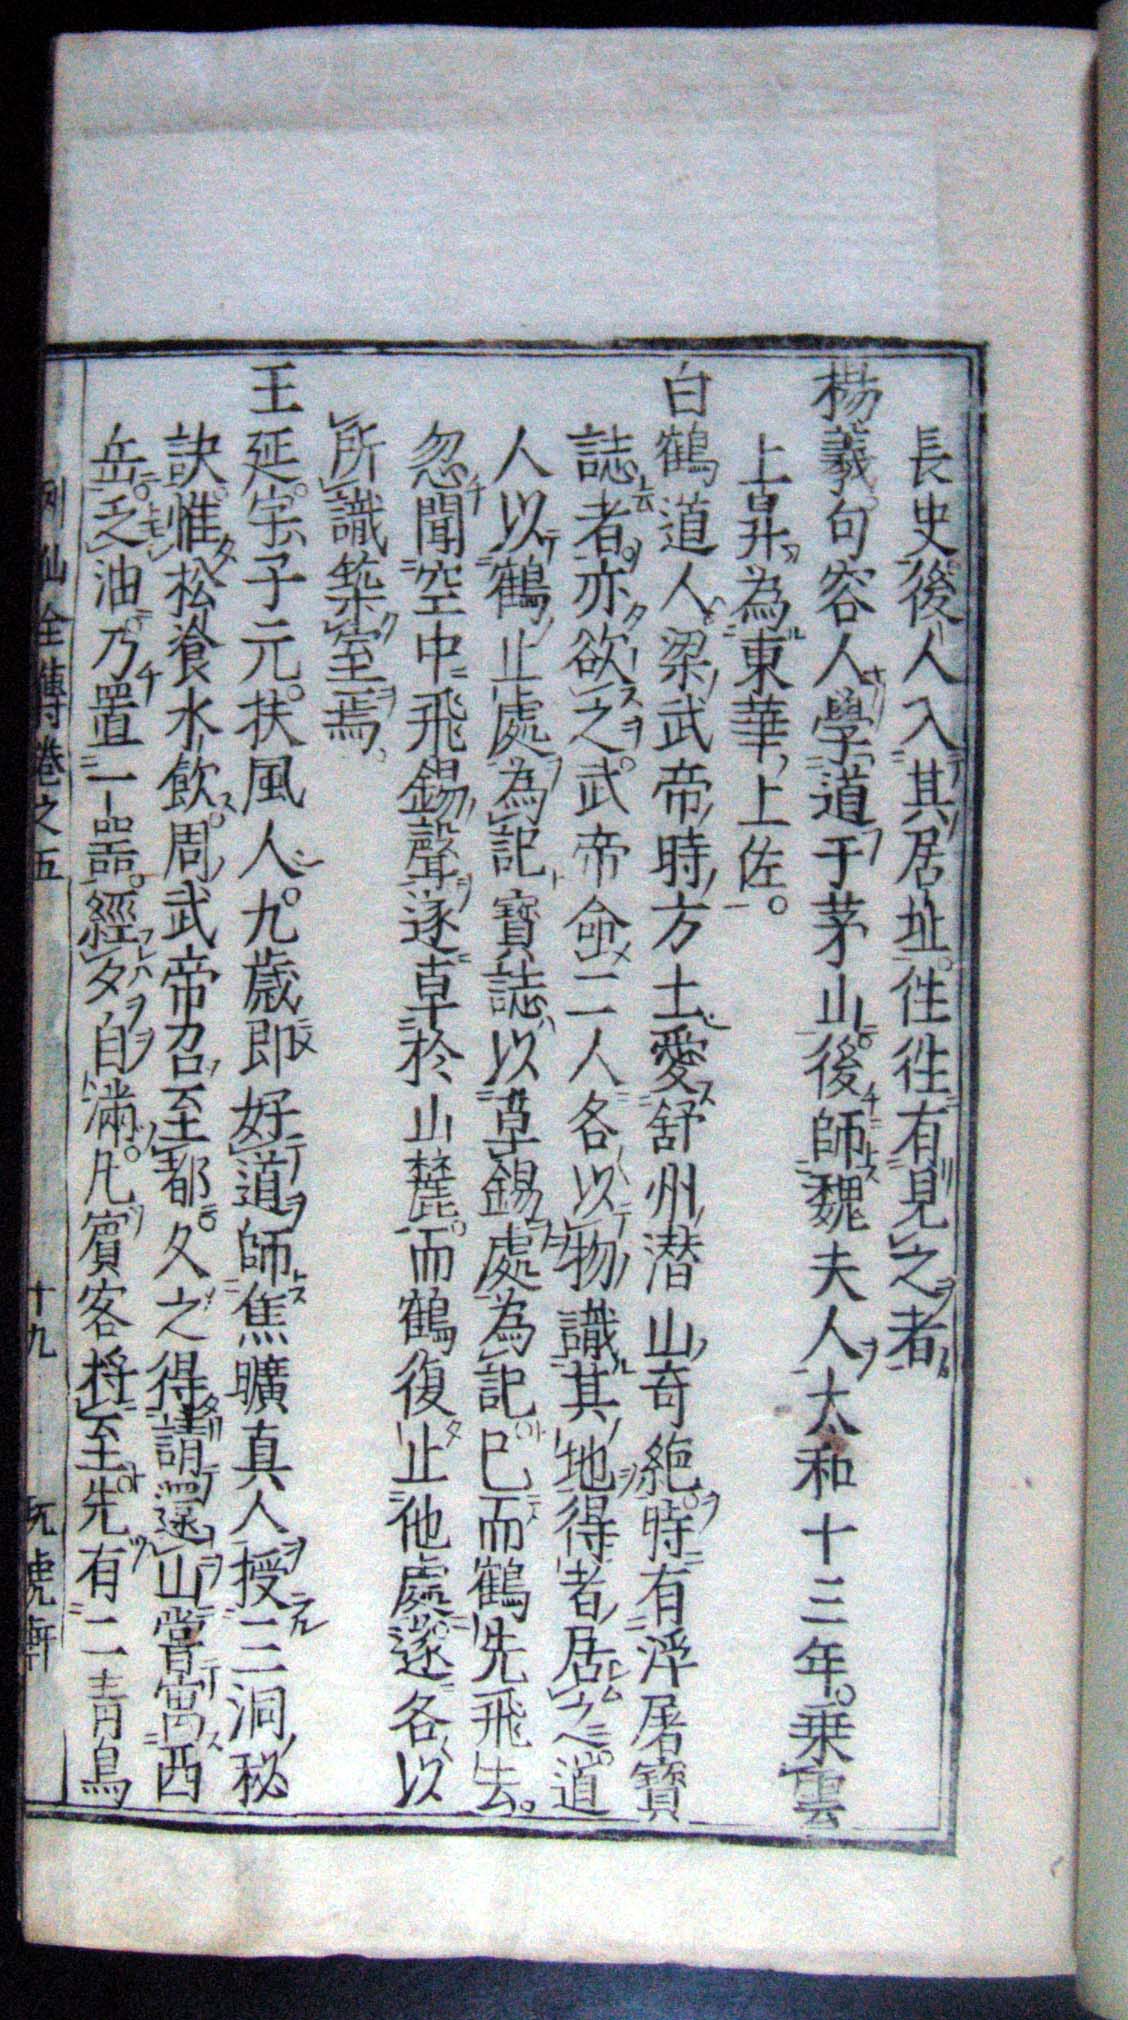 長史後人入其居址徃徃有見之者
楊羲句容人學道于茅山後師魏夫人太和十三年乗雲
上昇為東華上佐
白鶴道人梁武帝時方士愛舒州潛山奇絶時有浮屠寶
誌者亦欲之武帝命二人各以物識其地得者居之道
人以鶴止處為記寶誌以卓錫處為記巳而鶴先飛去
忽聞空中飛錫聲遂卓於山麓而鶴復止他處遂各以
所識築室焉
王延字子元扶風人九歳即好道師焦曠真人授三洞秘
訣惟松飡水飲周武帝召至都久之得請還山嘗寓西
岳乏油乃置一器經夕自滿凡賓客將至先有二青鳥
列仙全傳卷之五 十九 玩虎軒